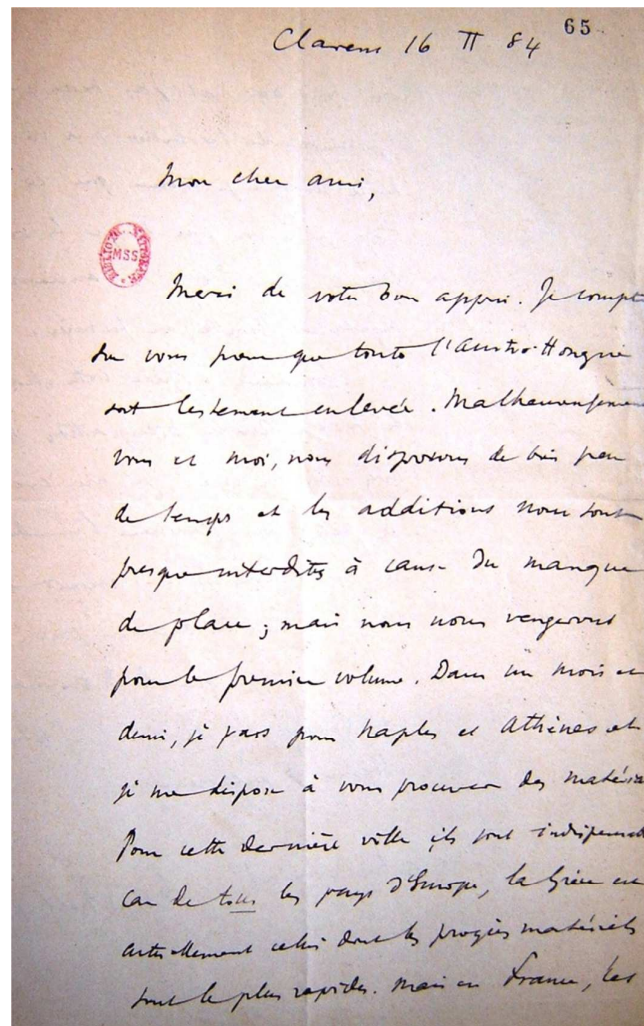 65
Clarens 16 II 84
Mon cher ami,
BIBLIOTH. NATIONALE
MSS
Merci de votre bon appui. Je compte
sur vous pour que toute l'Austro-Hongrie
soit lestement enlevée. Malheureusement
vous et moi, nous disposons de bien peu
de temps et les additions nous sont
presque interdites à cause du manque
de place ; mais nous nous vengerons
pour le premier volume. Dans un mois et
demi, je pars pour Naples et Athènes et
je me dispose à vous procurer des matériaux
Pour cette dernière ville ils sont indispensables
car de tous les pays d'Europe, la Grèce est
actuellement celui dont les progrès matériels
sont le plus rapides. Mais en France, les